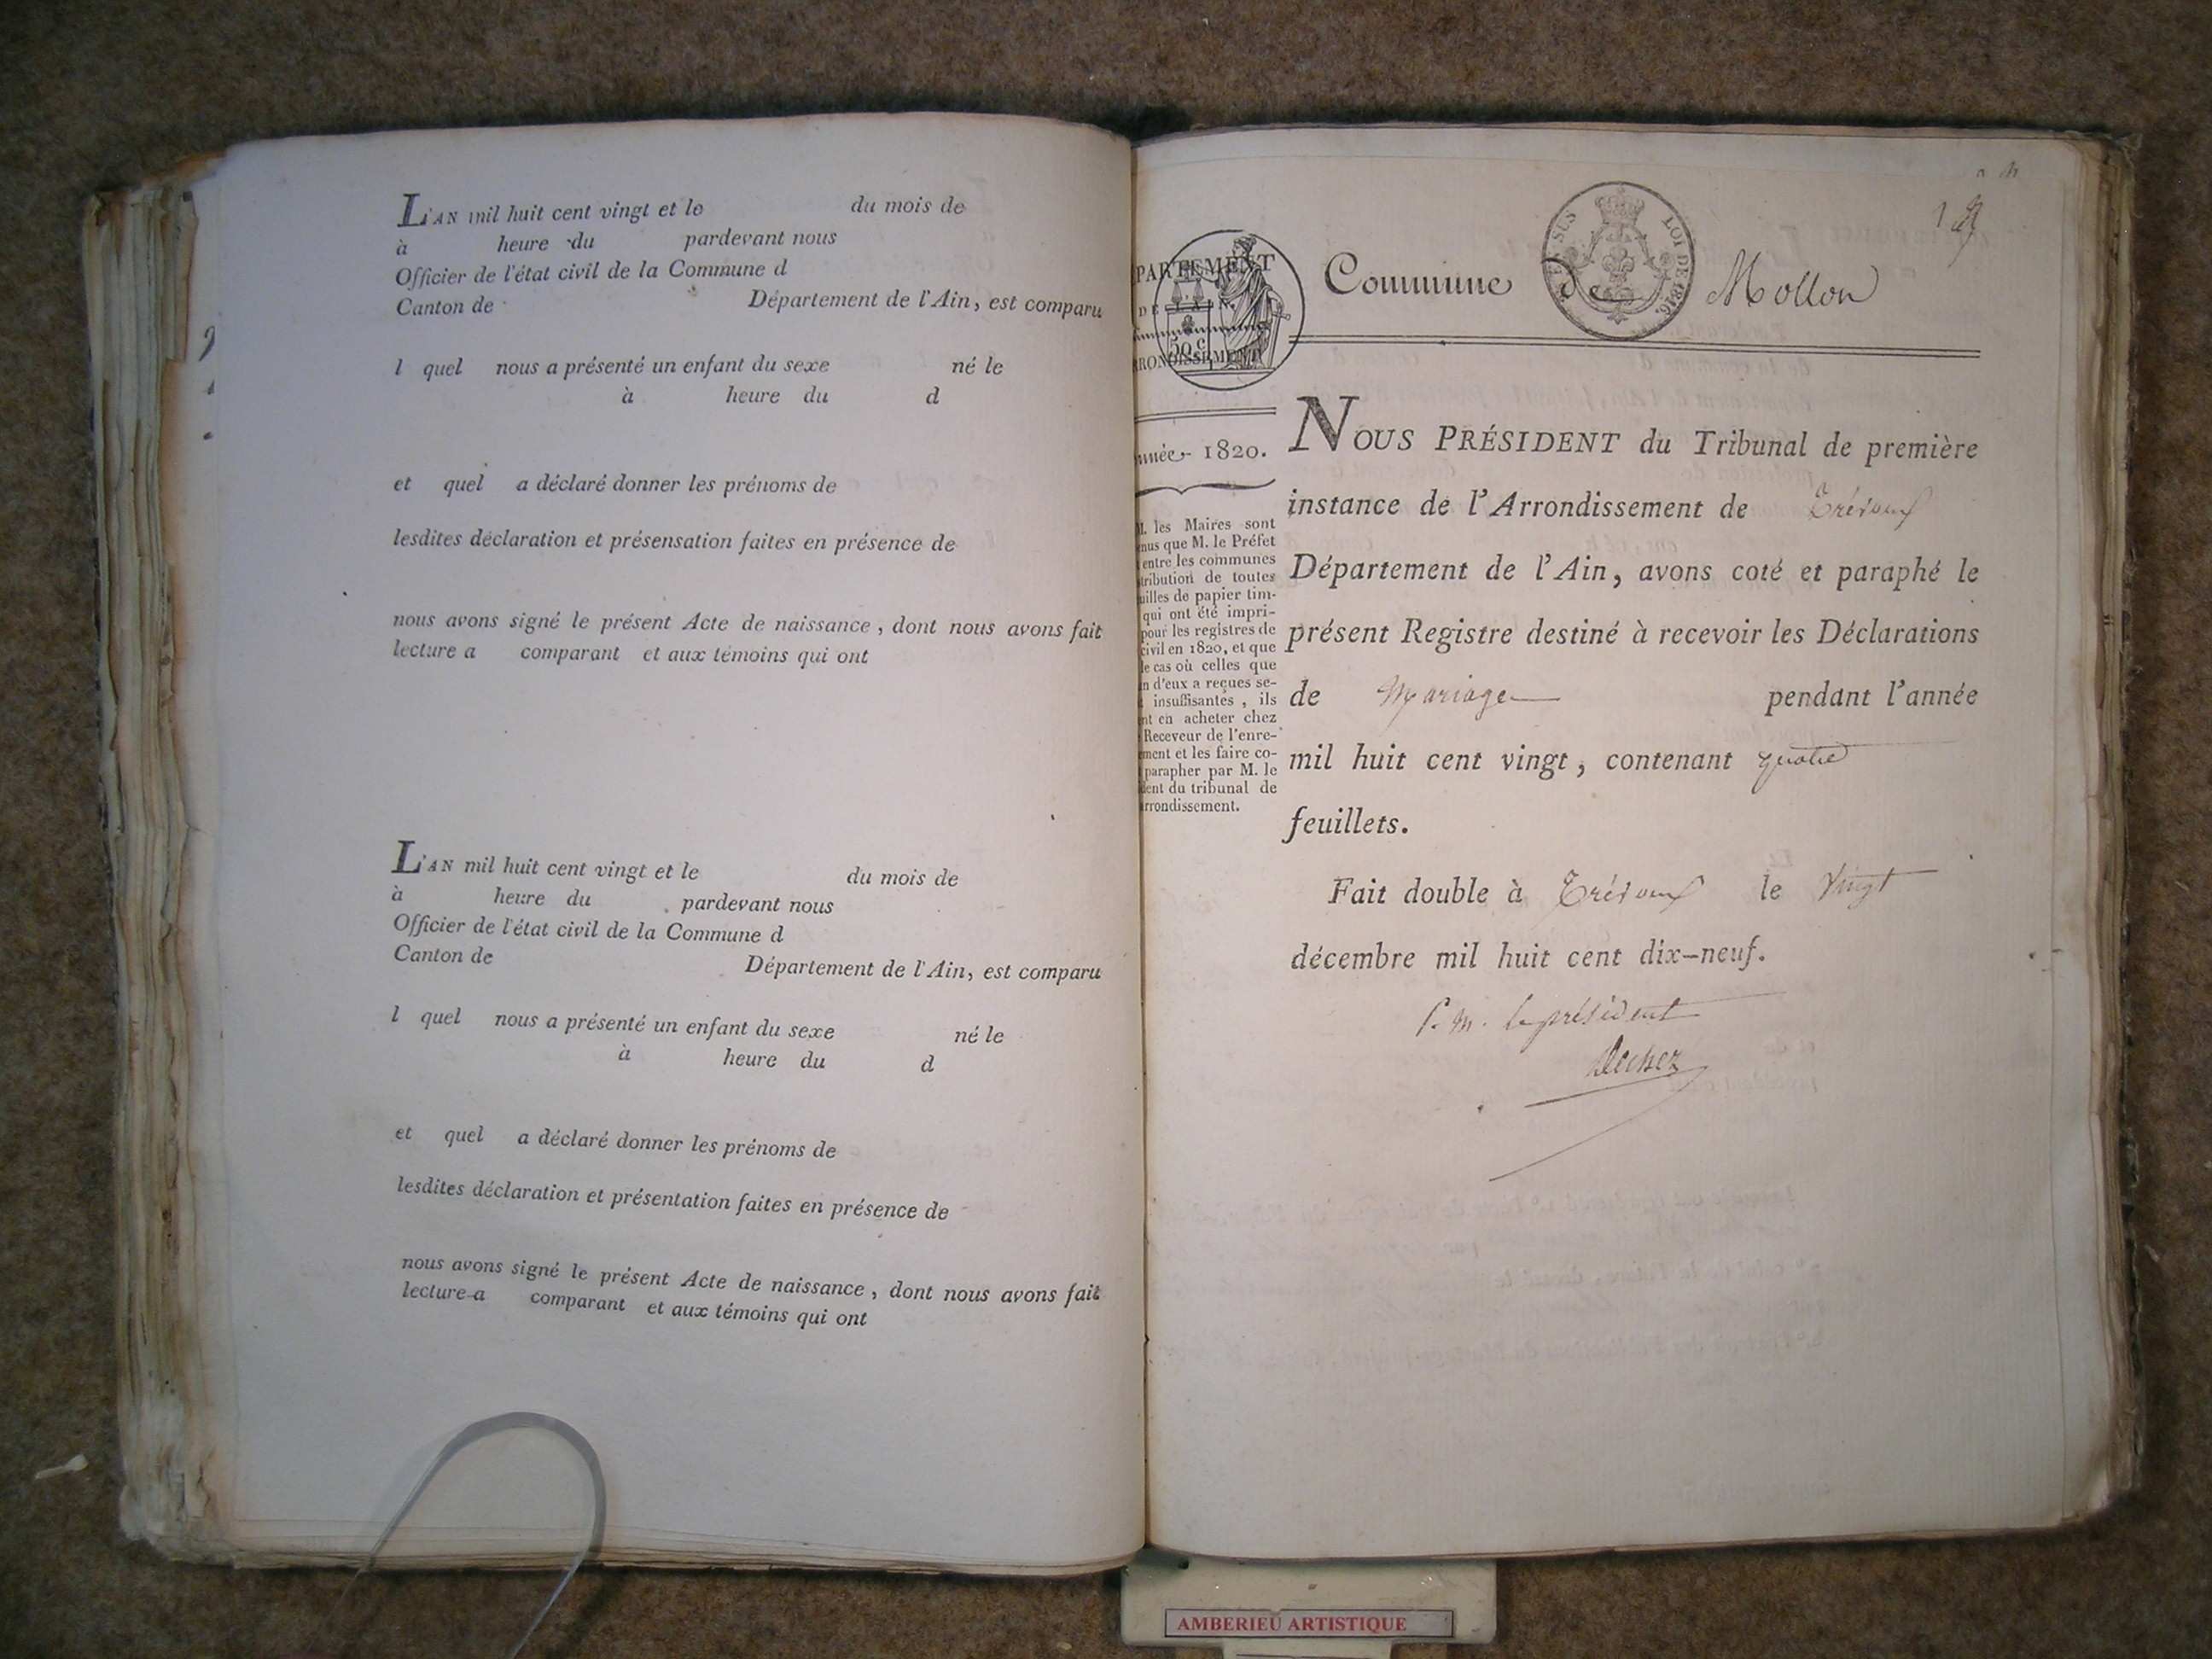 L'AN mil huit cent vingt et le du mois de
à heure du pardevant nous
Officier de l'état civil de la Commune d
Canton de Département de l'Ain, est comparu
l quel nous a présenté un enfant du sexe né le
à heure du d
et quel a déclaré donner les prénoms de
lesdites déclaration et présensation faites en présence de
nous avons signé le présent Acte de naissance, dont nous avons fait
lecture a comparant et aux témoins qui ont
L'AN mil huit cent vingt et le du mois de
à heure du pardevant nous
Officier de l'état civil de la Commune d
Canton de Département de l'Ain, est comparu
l quel nous a présenté un enfant du sexe né le
à heure du d
et quel a déclaré donner les prénoms de
lesdites déclaration et présentation faites en présence de
nous avons signé le présent Acte de naissance, dont nous avons fait
lecture a comparant et aux témoins qui ont
PARTEMENT
DE L'AIN.
50 c
RONDISSEMENT
LOI DE 1816.
Commune de Mollon
nnée 1820.
M. les Maires sont
nus que M. le Préfet
entre les communes
tribution de toutes
uilles de papier tim-
qui ont été impri-
pour les registres de
civil en 1820, et que
le cas où celles que
n d'eux a reçues se-
insuffisantes, ils
nt en acheter chez
Receveur de l'enre-
ment et les faire co-
parapher par M. le
dent du tribunal de
rrondissement.
NOUS PRÉSIDENT du Tribunal de première
instance de l'Arrondissement de Trévoux
Département de l'Ain, avons coté et paraphé le
présent Registre destiné à recevoir les Déclarations
de Mariage pendant l'année
mil huit cent vingt, contenant quatre
feuillets.
Fait double à Trévoux le vingt
décembre mil huit cent dix-neuf.
P. M. le président
AMBERIEU ARTISTIQUE